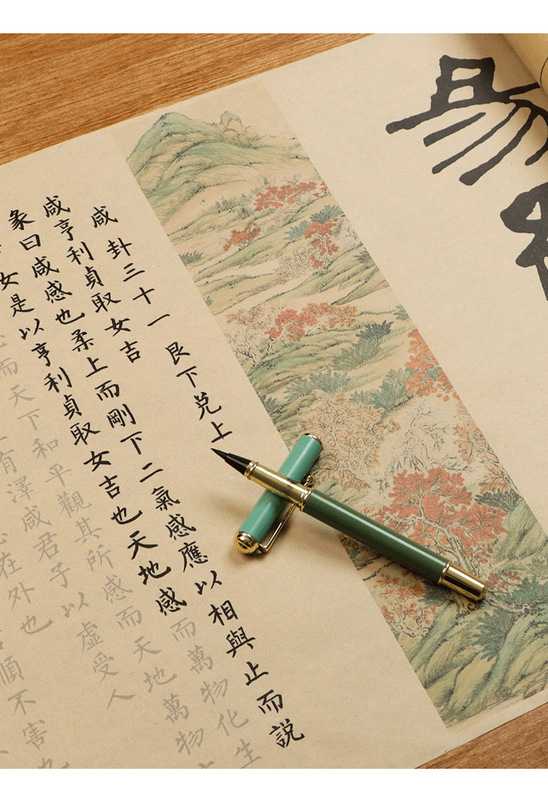 易
咸卦三十一 艮下兌上
咸亨利貞取女吉
彖曰咸感也柔上而剛下二氣感應以相與止而説
女是以亨利貞取女吉也天地感而萬物化生
心而天下和平觀其所感而天地萬物
有澤咸君子以虛受人
在外也
順不害也